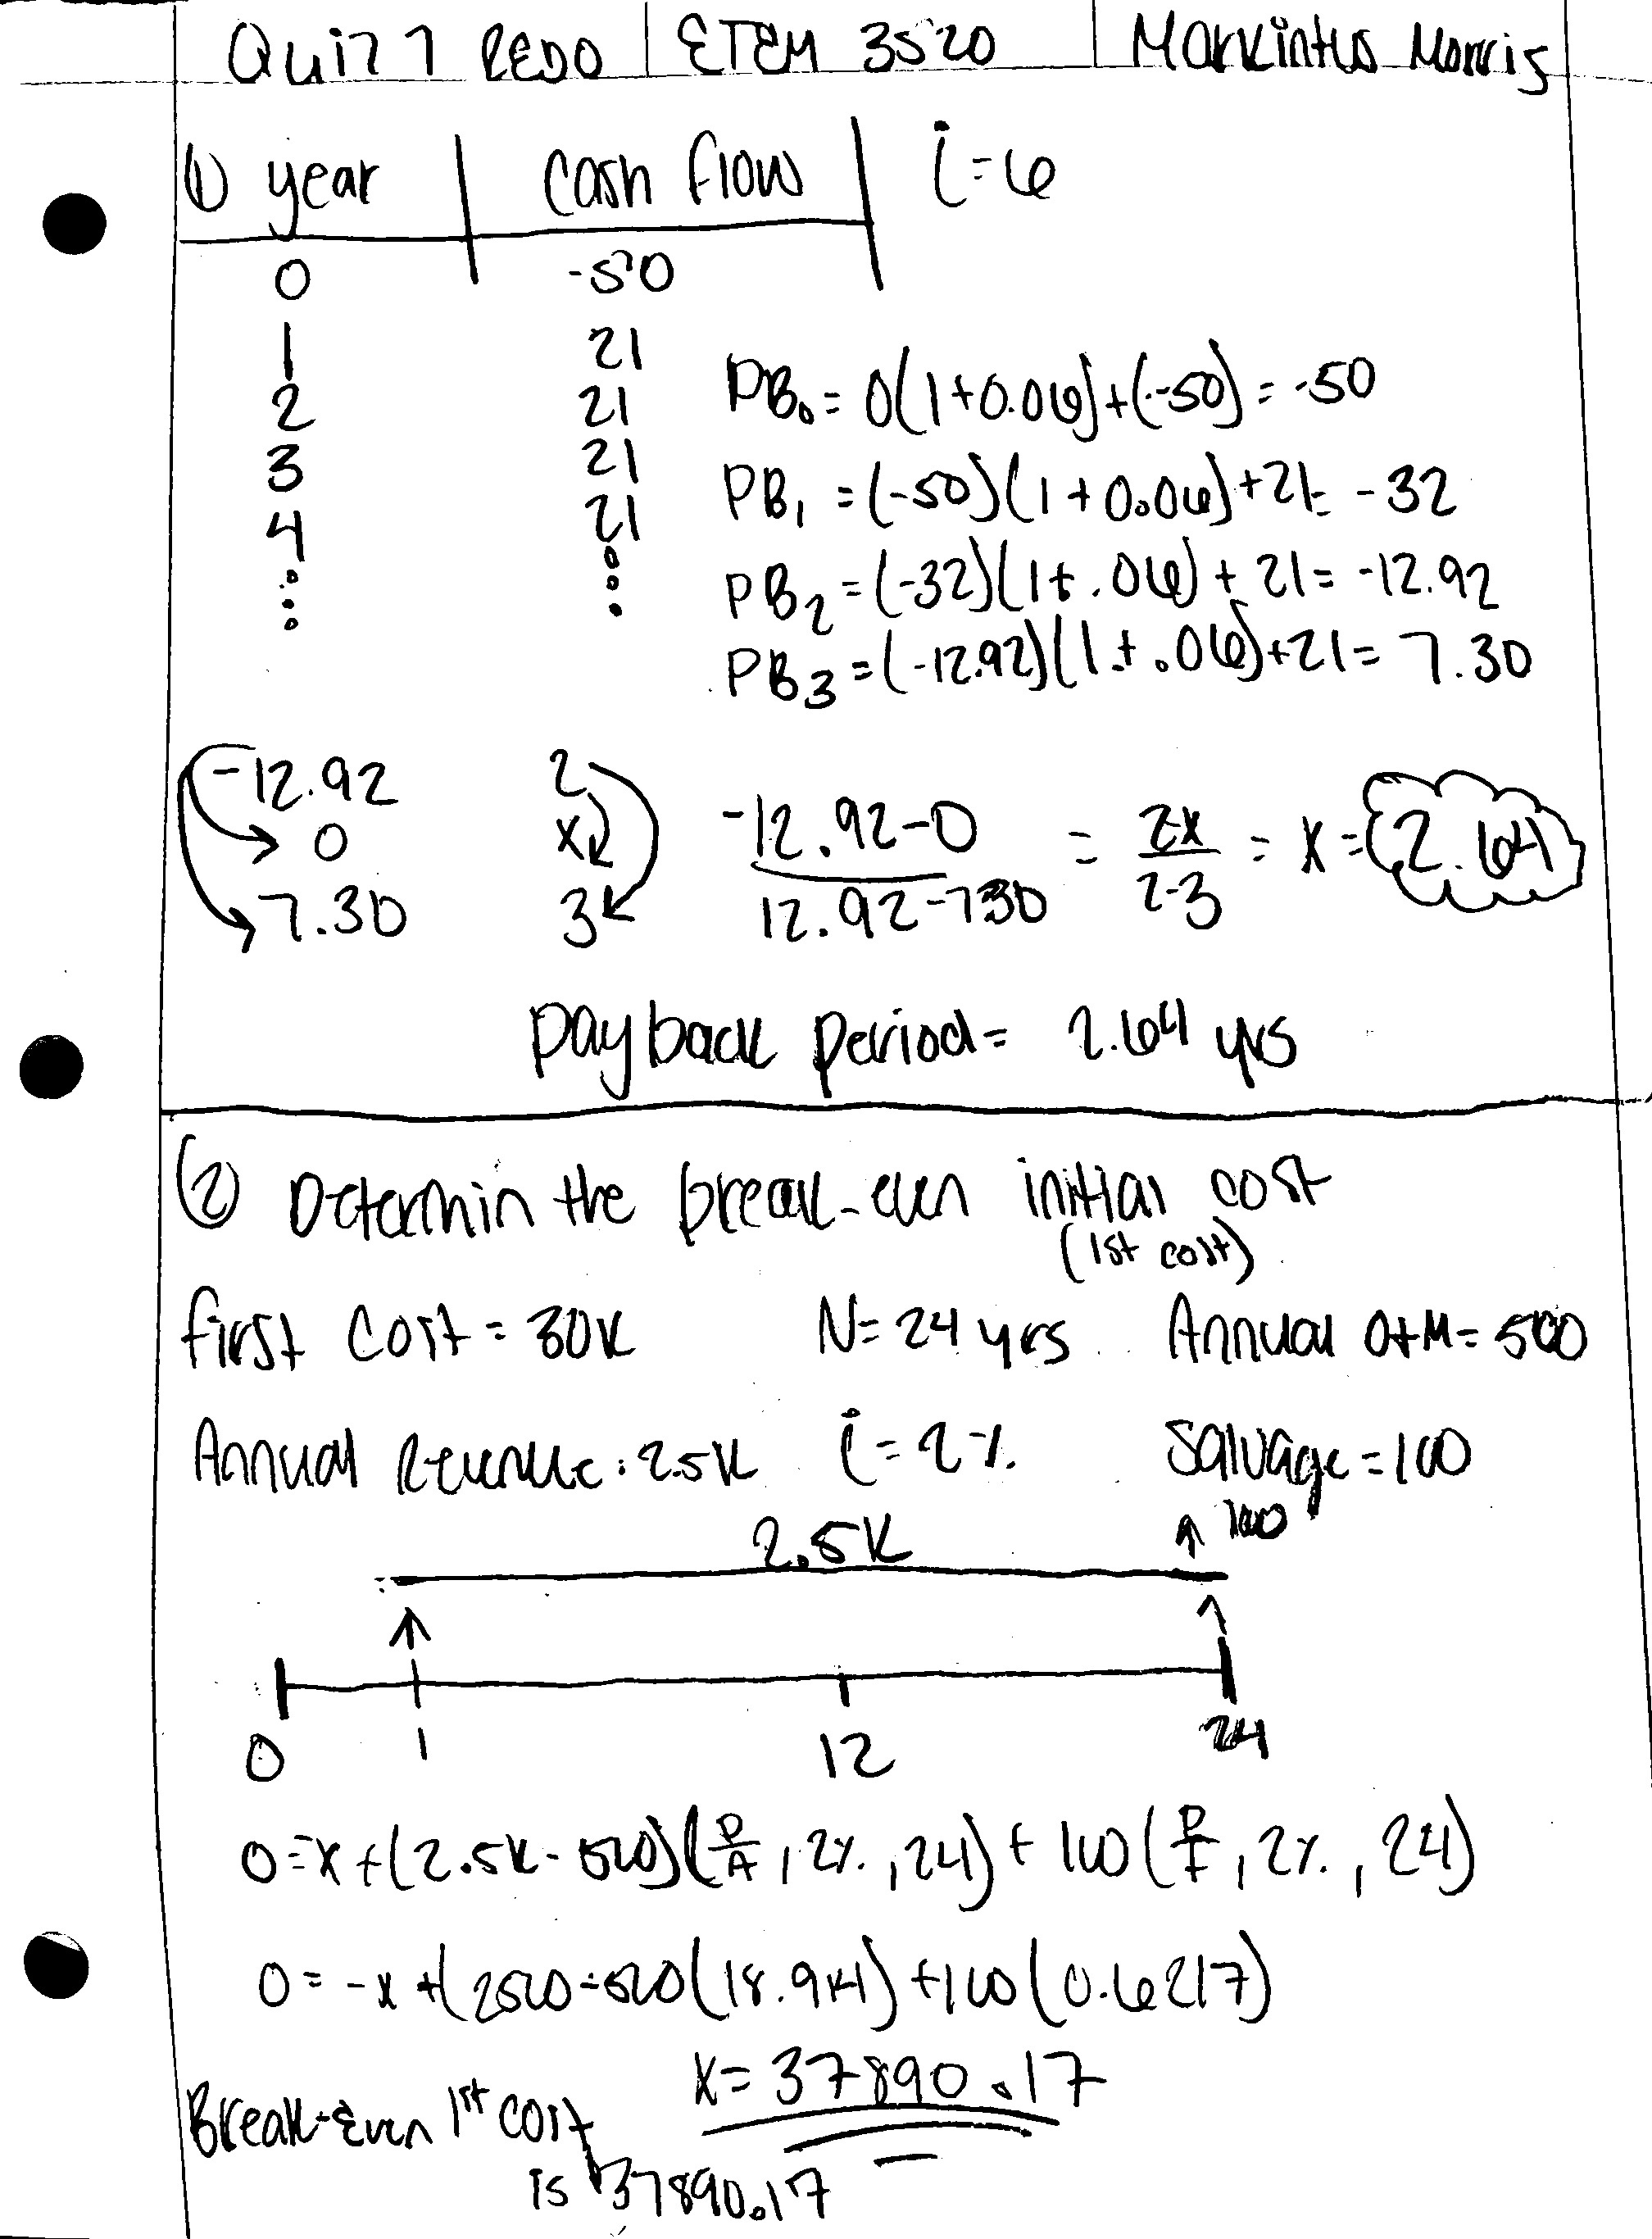 Quiz 7 REDO | ETEM 3520 | Markintus Morris
① year | cash flow | i=6
0 -50
1 21
2 21 PB₀ = 0(1+0.06)+(-50) = -50
3 21 PB₁ = (-50)(1+0.06)+21= -32
4 21
⋮ ⋮ PB₂ = (-32)(1+.06)+21= -12.92
PB₃ = (-12.92)(1+.06)+21= 7.30
-12.92 2
0 x -12.92-0 / 12.92-7.30 = 2-x / 2-3 = x = 2.64
7.30 3
Payback period = 2.64 yrs
② Determin the break-even initial cost
(1st cost)
first cost = 30K N= 24 yrs Annual O+M= 500
Annual Revenue: 2.5K i = 2%. Salvage = 100
2.5K ↑ 100
0 1 12 24
0=x+(2.5K-500)(P/A, 2%, 24) + 100(P/F, 2%, 24)
0 = -x+(2500-500(18.914)+100(0.6217)
x= 37890.17
Break-Even 1st cost
is 37890.17